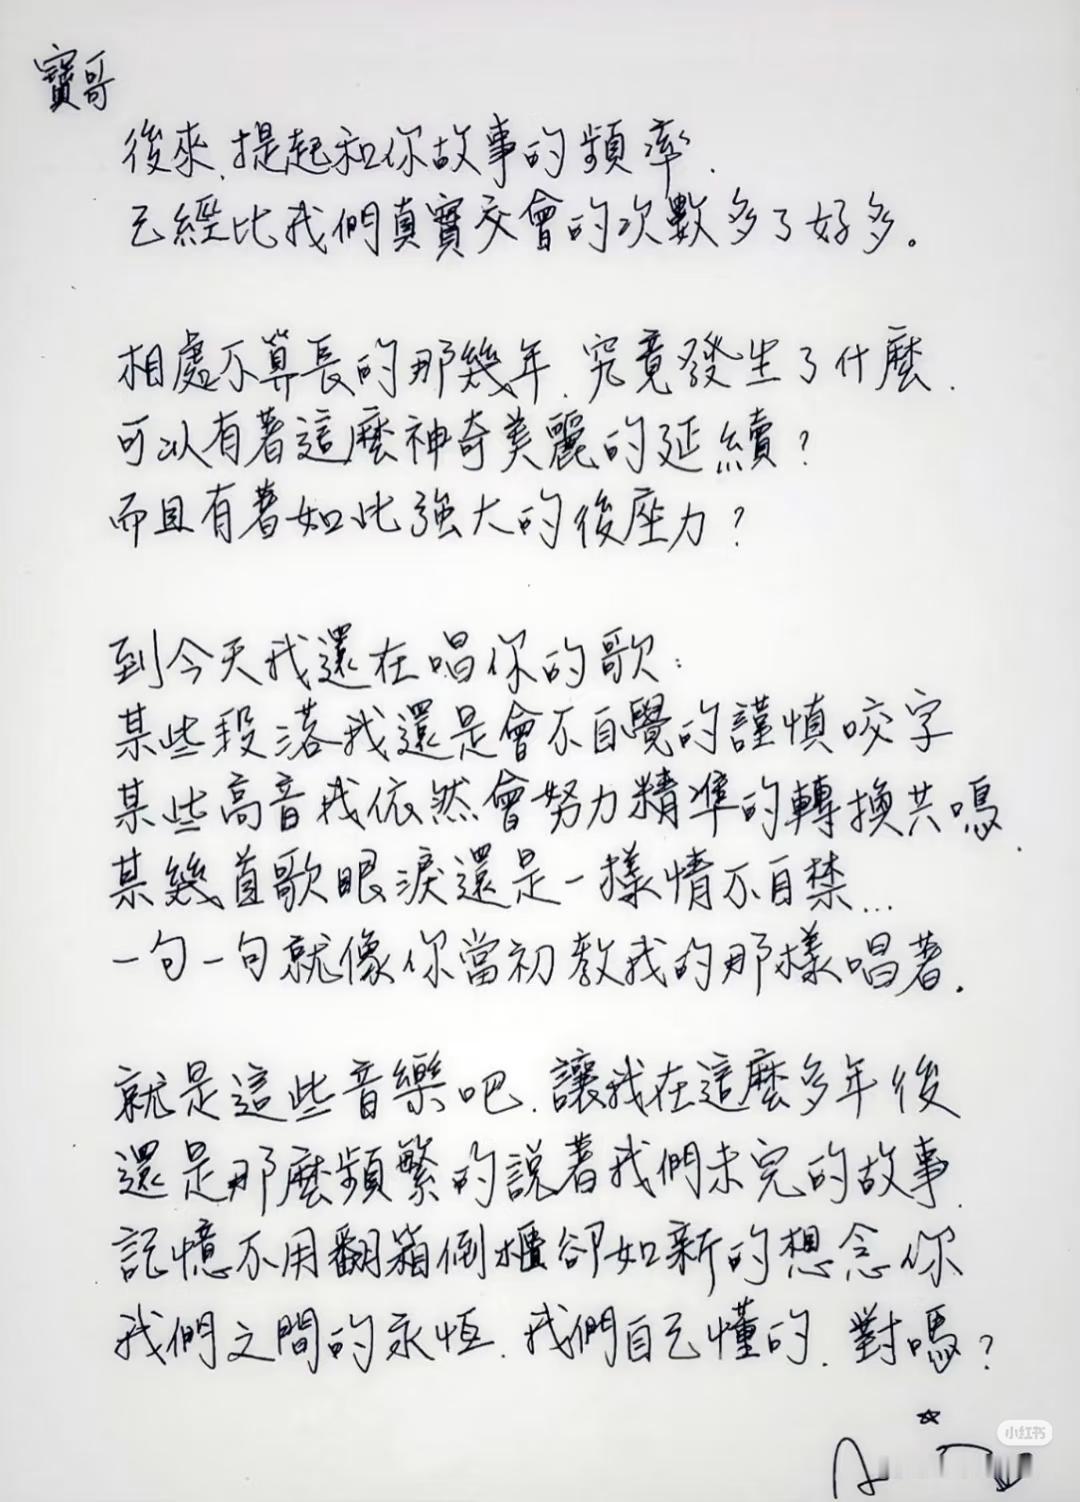 寶哥
後來.提起和你故事的頻率.
已經比我們真實交會的次數多了好多。
相處不算長的那幾年.究竟發生了什麼.
可以有著這麼神奇美麗的延續?
而且有著如此強大的後座力?
到今天我還在唱你的歌:
某些段落我還是會不自覺的謹慎咬字
某些高音我依然會努力精準的轉換共鳴.
某幾首歌眼淚還是一樣情不自禁...
一句一句就像你當初教我的那樣唱著.
就是這些音樂吧.讓我在這麼多年後
還是那麼頻繁的說著我們未完的故事.
記憶不用翻箱倒櫃卻如新的想念你
我們之間的永恆.我們自己懂的.對嗎?
小红书